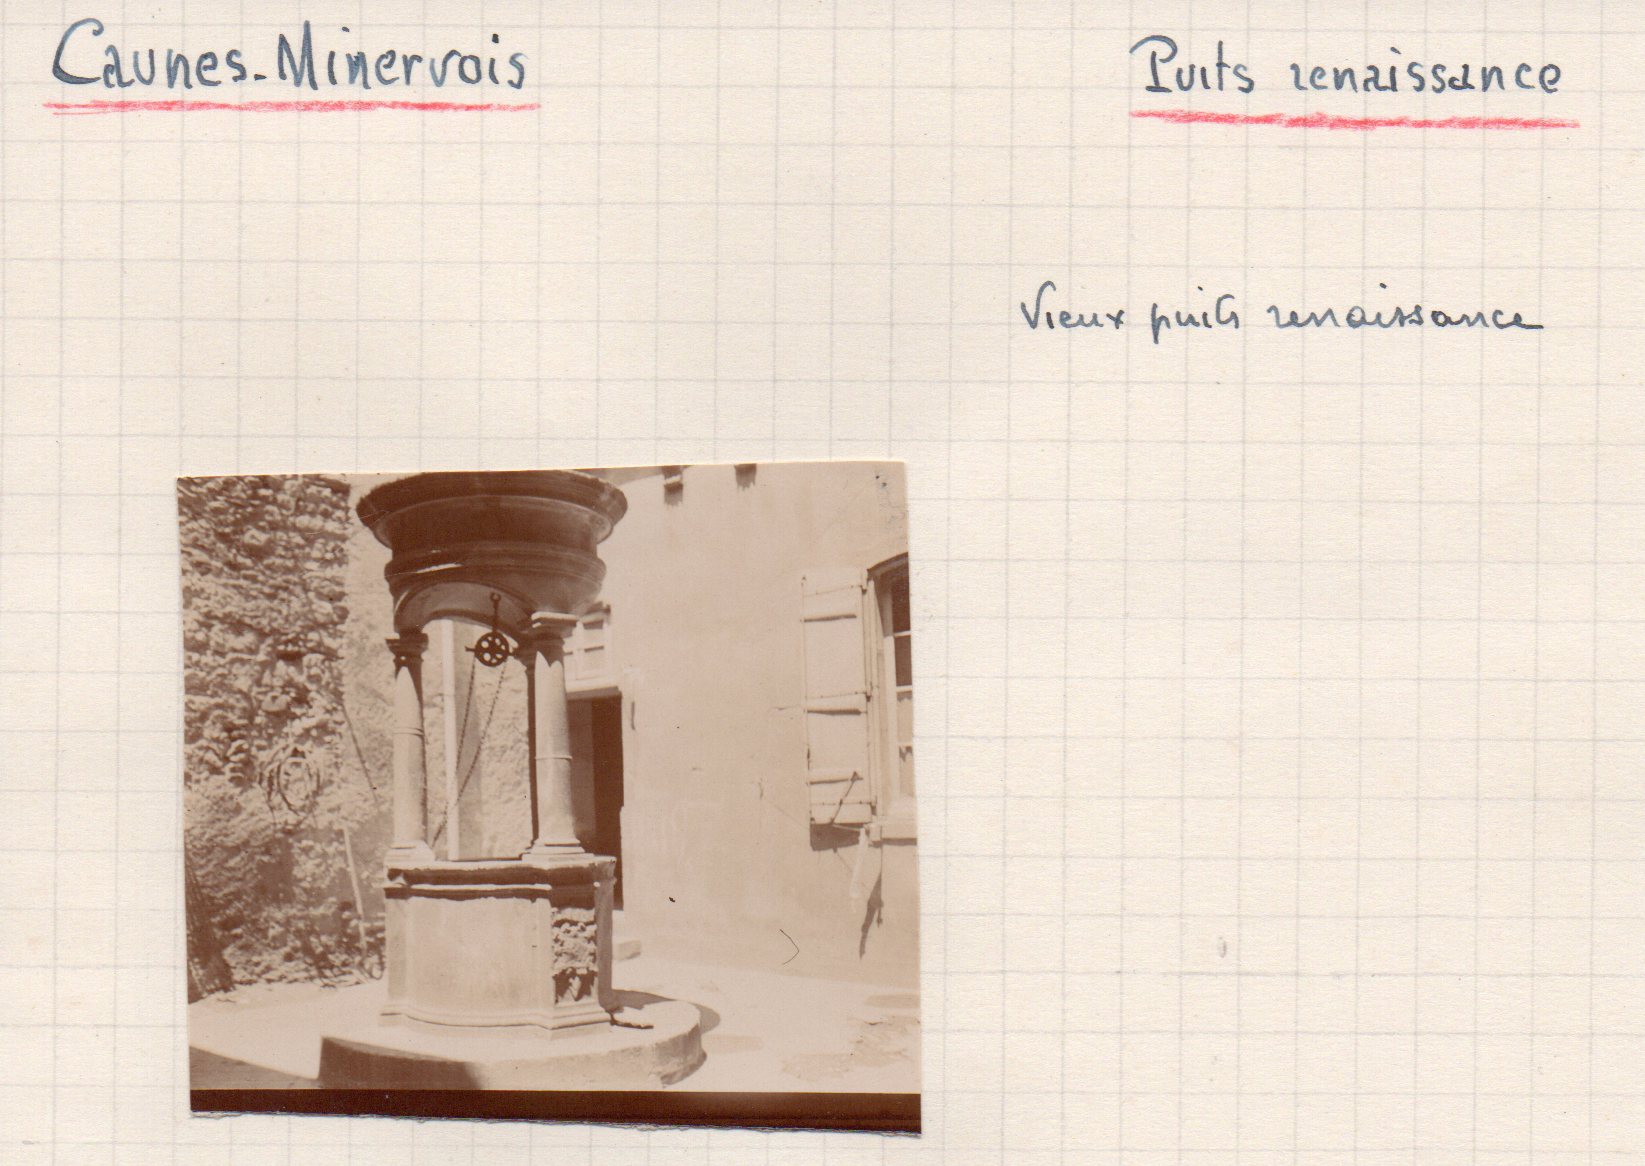 Caunes-Minervois
Puits renaissance
Vieux puits renaissance